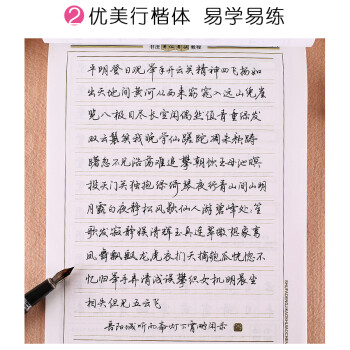 2 优美行楷体 易学易练
平明登日观举手开云关精神四飞扬如
出天地间黄河从西来窈窕入远山凭崖
览八极目尽长空闲偶然值青童绿发
双云鬟笑我晚学仙蹉跎凋朱颜踌
躇忽不见浩荡难追攀朝饮王母池暝
投天门关独抱绿绮琴夜行青山间山明
月露白夜静松风歇仙人游碧峰处:笙
歌发寂静娱清辉玉真连翠微想象鸾
凤舞飘飖龙虎衣扪天摘匏瓜恍惚不
忆归举手弄清浅误攀织女机明晨坐
相失但见五云飞
岳阳城听雨斋灯下